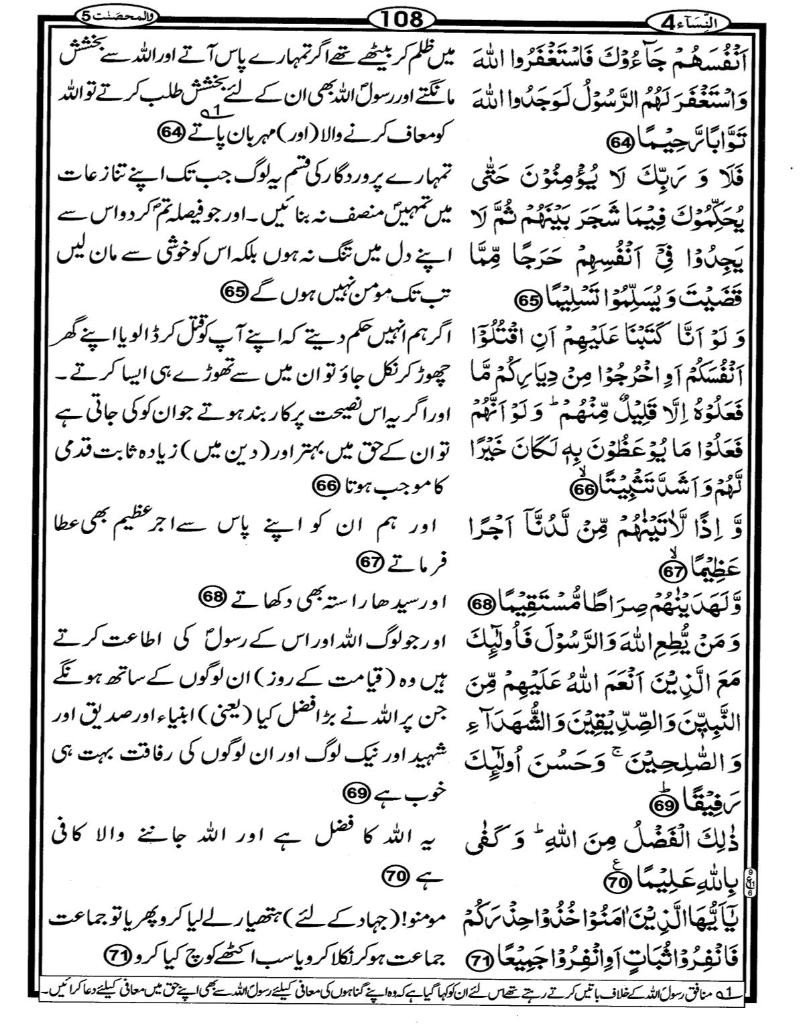 النِّسَآء 4
108
والمحصنٰت 5
اَنْفُسَهُمْ جَآءُوْكَ فَاسْتَغْفَرُوا اللّٰهَ
وَاسْتَغْفَرَ لَهُمُ الرَّسُوْلُ لَوَجَدُوا اللّٰهَ
تَوَّابًا رَّحِيْمًا 64
فَلَا وَ رَبِّكَ لَا يُؤْمِنُوْنَ حَتّٰى
يُحَكِّمُوْكَ فِيْمَا شَجَرَ بَيْنَهُمْ ثُمَّ لَا
يَجِدُوْا فِيْٓ اَنْفُسِهِمْ حَرَجًا مِّمَّا
قَضَيْتَ وَ يُسَلِّمُوْا تَسْلِيْمًا 65
وَ لَوْ اَنَّا كَتَبْنَا عَلَيْهِمْ اَنِ اقْتُلُوْٓا
اَنْفُسَكُمْ اَوِ اخْرُجُوْا مِنْ دِيَارِكُمْ مَّا
فَعَلُوْهُ اِلَّا قَلِيْلٌ مِّنْهُمْ ؕ وَ لَوْ اَنَّهُمْ
فَعَلُوْا مَا يُوْعَظُوْنَ بِهٖ لَكَانَ خَيْرًا
لَّهُمْ وَ اَشَدَّ تَثْبِيْتًا ۙ 66
وَّ اِذًا لَّاٰتَيْنٰهُمْ مِّنْ لَّدُنَّاۤ اَجْرًا
عَظِيْمًا ۙ 67
وَّ لَهَدَيْنٰهُمْ صِرَاطًا مُّسْتَقِيْمًا 68
وَ مَنْ يُّطِعِ اللّٰهَ وَالرَّسُوْلَ فَاُولٰٓئِكَ
مَعَ الَّذِيْنَ اَنْعَمَ اللّٰهُ عَلَيْهِمْ مِّنَ
النَّبِيّٖنَ وَالصِّدِّيْقِيْنَ وَالشُّهَدَآءِ
وَالصّٰلِحِيْنَ ۚ وَحَسُنَ اُولٰٓئِكَ
رَفِيْقًا ؕ 69
ذٰلِكَ الْفَضْلُ مِنَ اللّٰهِ ؕ وَ كَفٰى
بِاللّٰهِ عَلِيْمًا ع 70
يٰۤاَيُّهَا الَّذِيْنَ اٰمَنُوْا خُذُوْا حِذْرَكُمْ
فَانْفِرُوْا ثُبَاتٍ اَوِ انْفِرُوْا جَمِيْعًا 71
میں ظلم کر بیٹھے تھے اگر تمہارے پاس آتے اور اللہ سے بخشش
مانگتے اور رسولؐ اللہ بھی ان کے لئے بخشش طلب کرتے تو اللہ
کو معاف کرنے والا (اور) مہربان پاتے 1؎ 64
تمہارے پروردگار کی قسم یہ لوگ جب تک اپنے تنازعات
میں تمہیں منصف نہ بنائیں۔ اور جو فیصلہ تم کر دو اس سے
اپنے دل میں تنگ نہ ہوں بلکہ اس کو خوشی سے مان لیں
تب تک مومن نہیں ہوں گے 65
اگر ہم انہیں حکم دیتے کہ اپنے آپ کو قتل کر ڈالو یا اپنے گھر
چھوڑ کر نکل جاؤ تو ان میں سے تھوڑے ہی ایسا کرتے۔
اور اگر یہ اس نصیحت پر کاربند ہوتے جو ان کو کی جاتی ہے
تو ان کے حق میں بہتر اور (دین میں) زیادہ ثابت قدمی
کا موجب ہوتا 66
اور ہم ان کو اپنے پاس سے اجر عظیم بھی عطا
فرماتے 67
اور سیدھا راستہ بھی دکھاتے 68
اور جو لوگ اللہ اور اس کے رسولؐ کی اطاعت کرتے
ہیں وہ (قیامت کے روز) ان لوگوں کے ساتھ ہونگے
جن پر اللہ نے بڑا فضل کیا (یعنی) انبیاء اور صدیق اور
شہید اور نیک لوگ اور ان لوگوں کی رفاقت بہت ہی
خوب ہے 69
یہ اللہ کا فضل ہے اور اللہ جاننے والا کافی
ہے 70
مومنو! (جہاد کے لئے) ہتھیار لے لیا کرو پھر یا تو جماعت
جماعت ہو کر نکلا کرو یا سب اکٹھے کوچ کیا کرو 71
1؎ منافق رسولؐ اللہ کے خلاف باتیں کرتے رہتے تھے اس لئے ان کو کہا گیا ہے کہ وہ اپنے گناہوں کی معافی کیلئے رسولؐ اللہ سے بھی اپنے حق میں معافی کیلئے دعا کرائیں۔